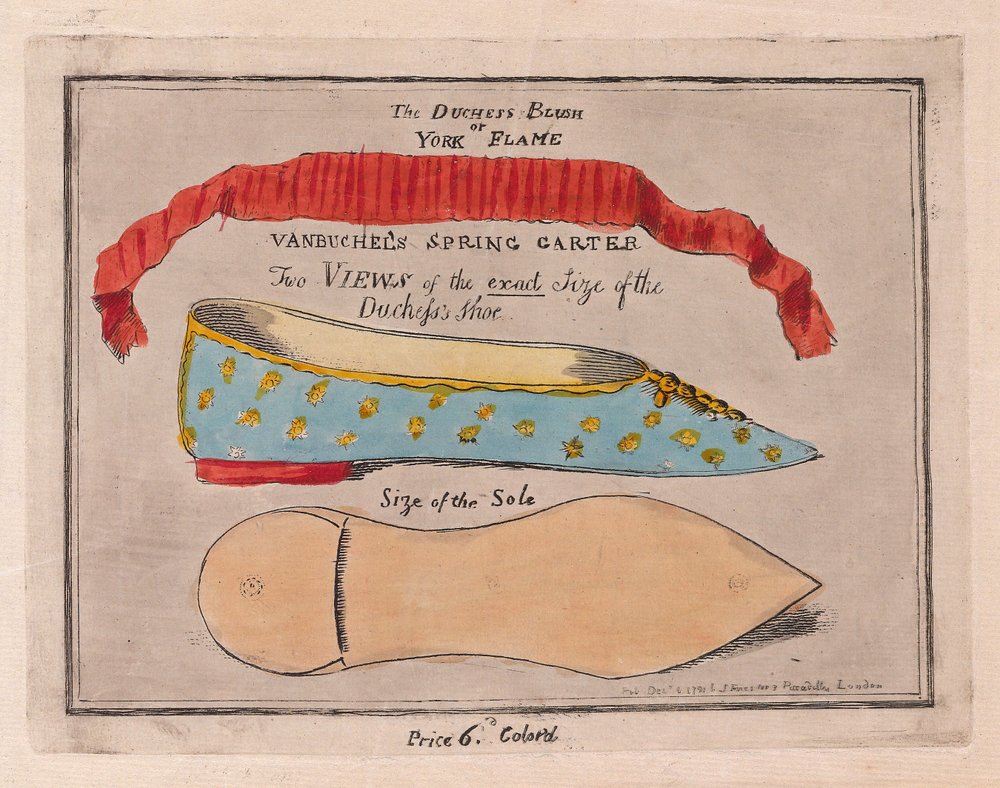 The DUCHESS BLUSH
or
YORK FLAME
VANBUCHEL'S SPRING GARTER
Two VIEWS of the exact Size of the
Duchess's Shoe
Size of the Sole
Pub Decr 1791 by J Fores No 3 Piccadilly London
Price 6.d Colord